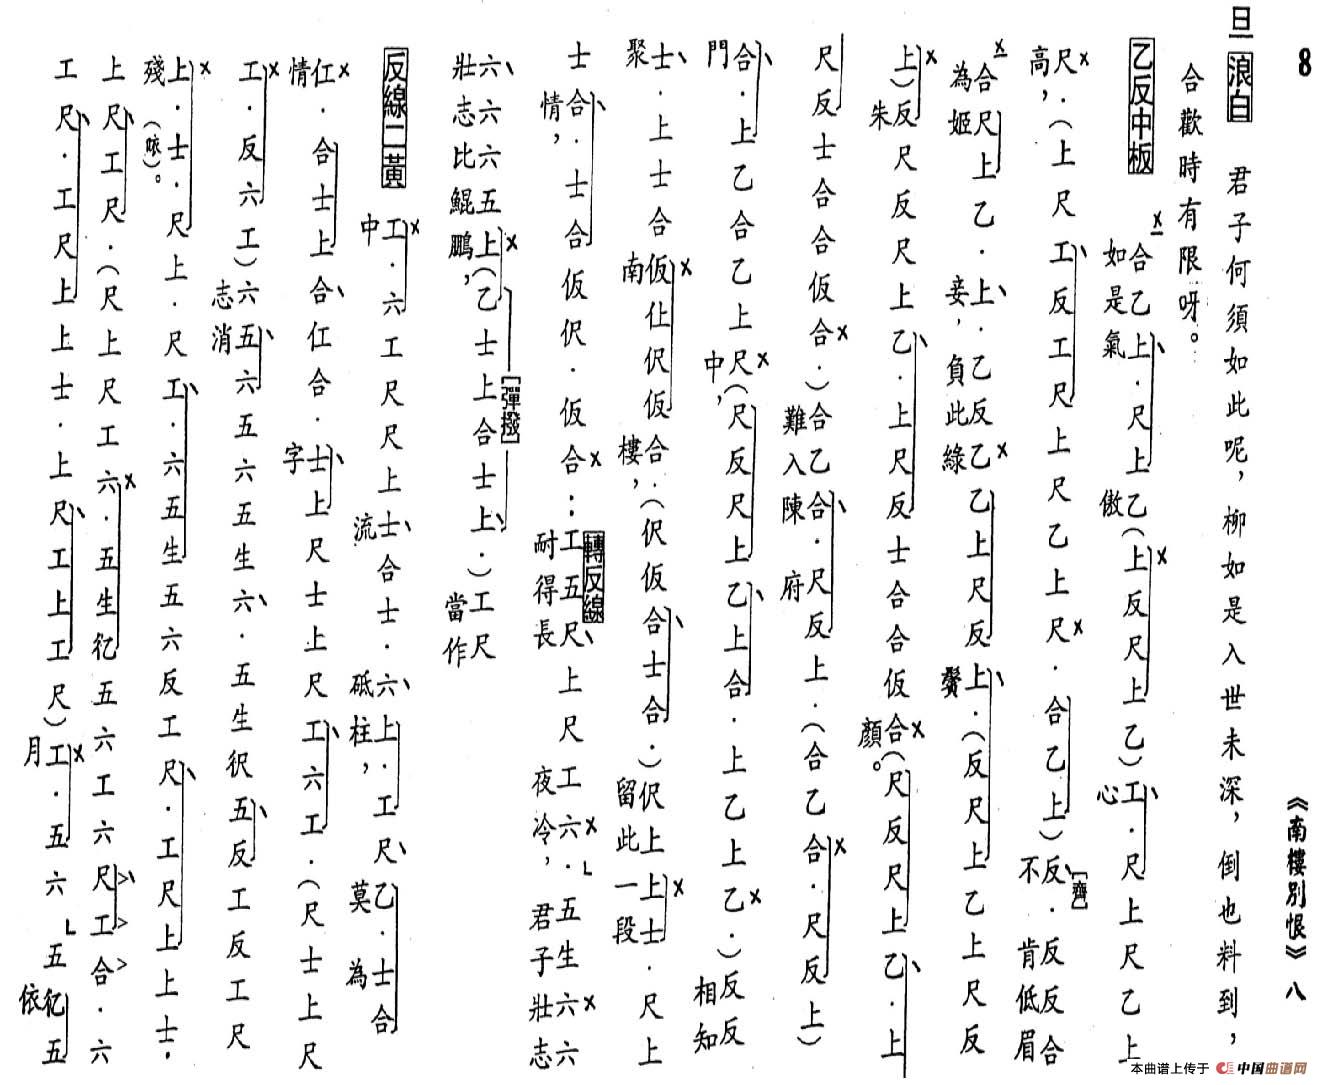 8
《南樓別恨》八
旦 浪白 君子何須如此呢，柳如是入世未深，倒也料到，
合歡時有限呀。
乙反中板 合乙上．尺上乙(上反尺上乙)工．尺上尺乙上
如是氣傲心
尺．(上尺工反工尺上尺乙上尺．合乙上)反．反反合
高，不肯低眉
[齊]
合尺上乙．上．乙反乙乙上尺反上．(反尺上乙上尺反
為姬妾，負此綠鬢
上)反尺反尺上乙．上尺反士合合仮合(尺反尺上乙．上
朱顏。
尺反士合合仮合．)合乙合．尺反上．(合乙合．尺反上)
難入陳府
合．上乙合乙上尺(尺反尺上乙上合．上乙上乙．)反反
門中，相知
士．上士合仮仩伬仮合．(伬仮合士合．)伬上上士．尺上
聚南樓，留此一段
士合．士合仮伬．仮合：工五尺上尺工六．五生六六
情，耐得長夜冷，君子壯志
轉反線
六六六五上(乙士上合士上．)工尺
壯志比鯤鵬，當作
[彈撥]
反線二黃 工．六工尺尺上士合士．六上．工尺乙．士合
中流砥柱，莫為
仜．合士上合仜合．士上尺士上尺工六工．(尺士上尺
情字
工．反六工)六五六五六五生六．五生伬五反工反工尺
志消
上．士．尺上．尺工．六五生五六反工尺．工尺上上士．
殘(咳)。
上尺工尺．(尺上尺工六．五生㐅五六工六尺工合．六
工尺．工尺上上士．上尺工上工尺)工．五六五㐅五
月依
本曲谱上传于 中国曲谱网